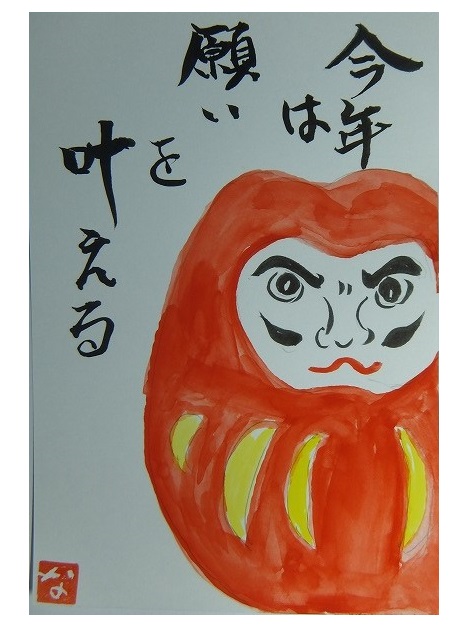 今年は
願いを
叶える
な